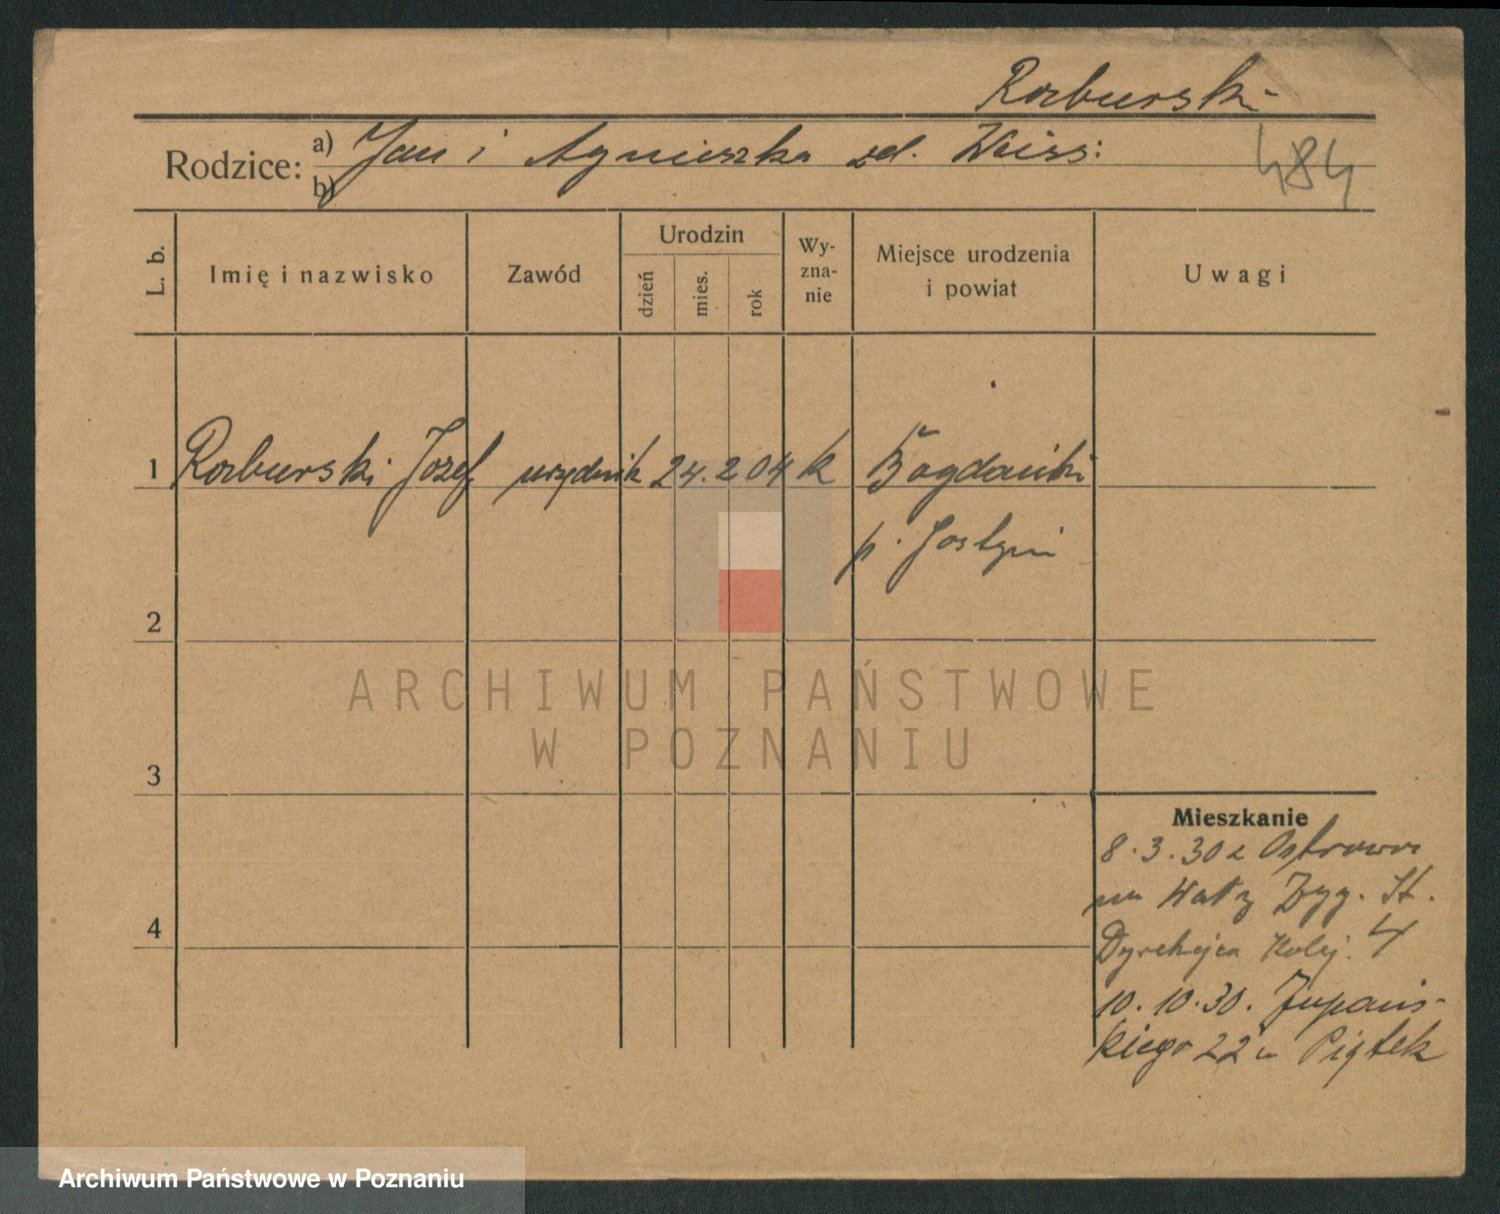 Raburski
Rodzice: a) Jan i Agnieszka zd. Weiss:
b)
484
L. b.
Imię i nazwisko
Zawód
Urodzin
dzień
mies.
rok
Wy-
zna-
nie
Miejsce urodzenia
i powiat
Uwagi
1 Raburski Józef urzędnik 24. 2 04 k Bogdanki
p. Gostyń
2
ARCHIWUM PAŃSTWOWE
W POZNANIU
3
Mieszkanie
8. 3. 30 z Ostrowa
na Zyg. St.
4
Dyrekcja Kolej. 4
10. 10. 30. Żupańs-
kiego 22 u Piątek
Archiwum Państwowe w Poznaniu